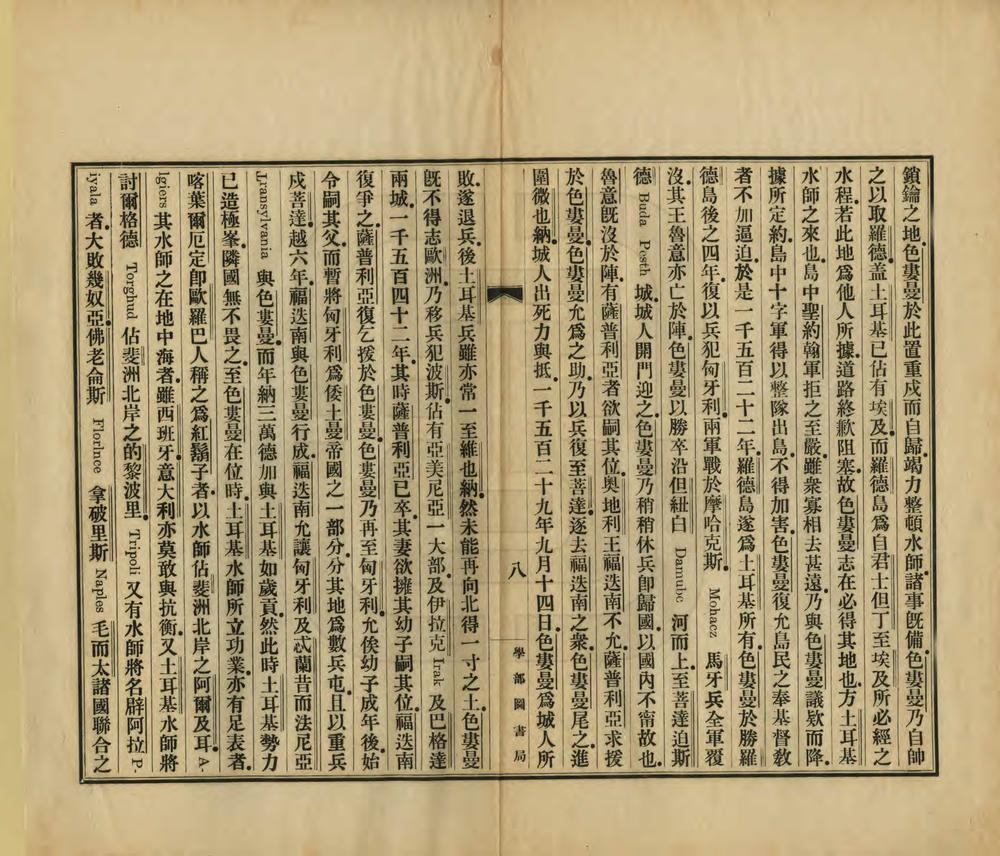 鎖鑰之地色婁曼於此置重戍而自歸竭力整頓水師諸事旣備色婁曼乃自帥
之以取羅德蓋土耳基已佔有埃及而羅德島爲自君士但丁至埃及所必經之
水程若此地爲他人所據道路終歉阻塞故色婁曼志在必得其地也方土耳基
水師之來也島中聖約翰軍拒之至嚴雖衆寡相去甚遠乃與色婁曼議欵而降
據所定約島中十字軍得以整隊出島不得加害色婁曼復允島民之奉基督敎
者不加逼迫於是一千五百二十二年羅德島遂爲土耳基所有色婁曼於勝羅
德島後之四年復以兵犯匈牙利兩軍戰於摩哈克斯 Mohacz 馬牙兵全軍覆
沒其王魯意亦亡於陣色婁曼以勝卒沿但紐白 Damube 河而上至菩達迫斯
德 Buda Pesth 城城人開門迎之色婁曼乃稍稍休兵卽歸國以國內不甯故也
魯意旣沒於陣有薩普利亞者欲嗣其位奧地利王福迭南不允薩普利亞求援
於色婁曼色婁曼允爲之助乃以兵復至菩達逐去福迭南之衆色婁曼尾之進
圍微也納城人出死力與抵一千五百二十九年九月十四日色婁曼爲城人所
八
學部圖書局
敗遂退兵後土耳基兵雖亦常一至維也納然未能再向北得一寸之土色婁曼
旣不得志歐洲乃移兵犯波斯佔有亞美尼亞一大部及伊拉克 Irak 及巴格達
兩城一千五百四十二年其時薩普利亞已卒其妻欲擁其幼子嗣其位福迭南
復爭之薩普利亞復乞援於色婁曼色婁曼乃再至匈牙利允俟幼子成年後始
令嗣其父而暫將匈牙利爲倭土曼帝國之一部分分其地爲數兵屯且以重兵
戍菩達越六年福迭南與色婁曼行成福迭南允讓匈牙利及忒蘭昔而法尼亞
Transylvania 與色婁曼而年納三萬德加與土耳基如歲貢然此時土耳基勢力
已造極峯隣國無不畏之至色婁曼在位時土耳基水師所立功業亦有足表者
喀葉爾厄定卽歐羅巴人稱之爲紅鬍子者以水師佔斐洲北岸之阿爾及耳 A-
lgiers 其水師之在地中海者雖西班牙意大利亦莫敢與抗衡又土耳基水師將
討爾格德 Torghud 佔斐洲北岸之的黎波里 Tripoli 又有水師將名辟阿拉 P-
iyala 者大敗幾奴亞佛老侖斯 Florlnce 拿破里斯 Naples 毛而太諸國聯合之